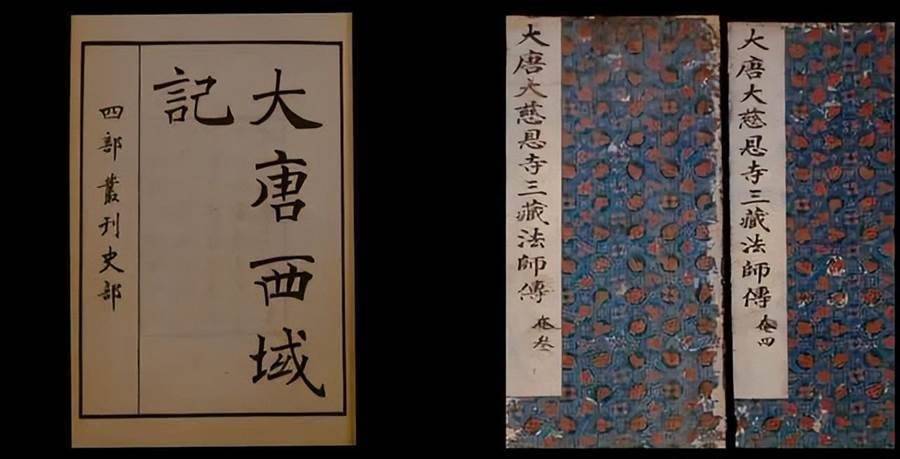 大唐西域
記
四部叢刊史部
大唐大慈恩寺三藏法師傳 卷叁
大唐大慈恩寺三藏法師傳 卷四